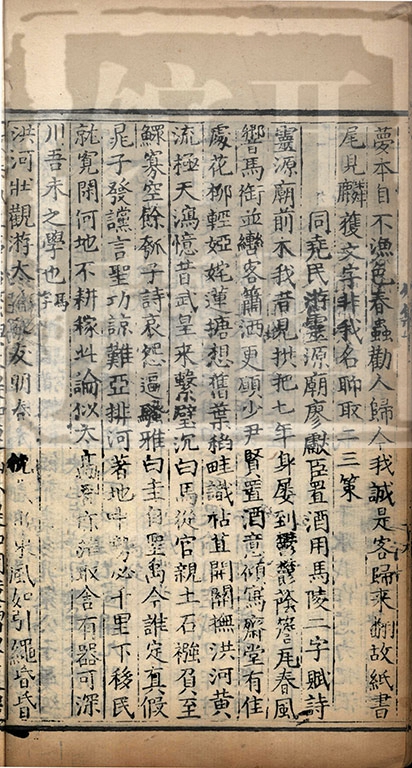 夢本自不漁色春蟲勸人歸今我誠是客歸來翻故紙書
尾見麟獲文字非我名聊取二三策
同堯民游靈源廟廖獻臣置酒用馬陵二字賦詩
靈源廟前木我昔見拱把七年身屢到鬱鬱蔭簷瓦春風
響馬銜並轡客蕭洒更少尹賢置酒意傾寫齋堂有佳
處花柳輕婭姹蓮塘想舊葉稻畦識枯苴開關撫洪河黃
流極天瀉憶昔武皇來繫璧沉白馬從官親土石襁負至
鰥寡空餘瓠子詩哀怨逼騷雅白圭自聖禹今誰定真假
晁子發讜言聖功諒難亞排河著地中勢必千里下移民
就寬閑何地不耕稼此論似太高吾亦茫取舍有器可深
川吾未之學也馬字
洪河壯觀游太友朋春風如引繩昏昏